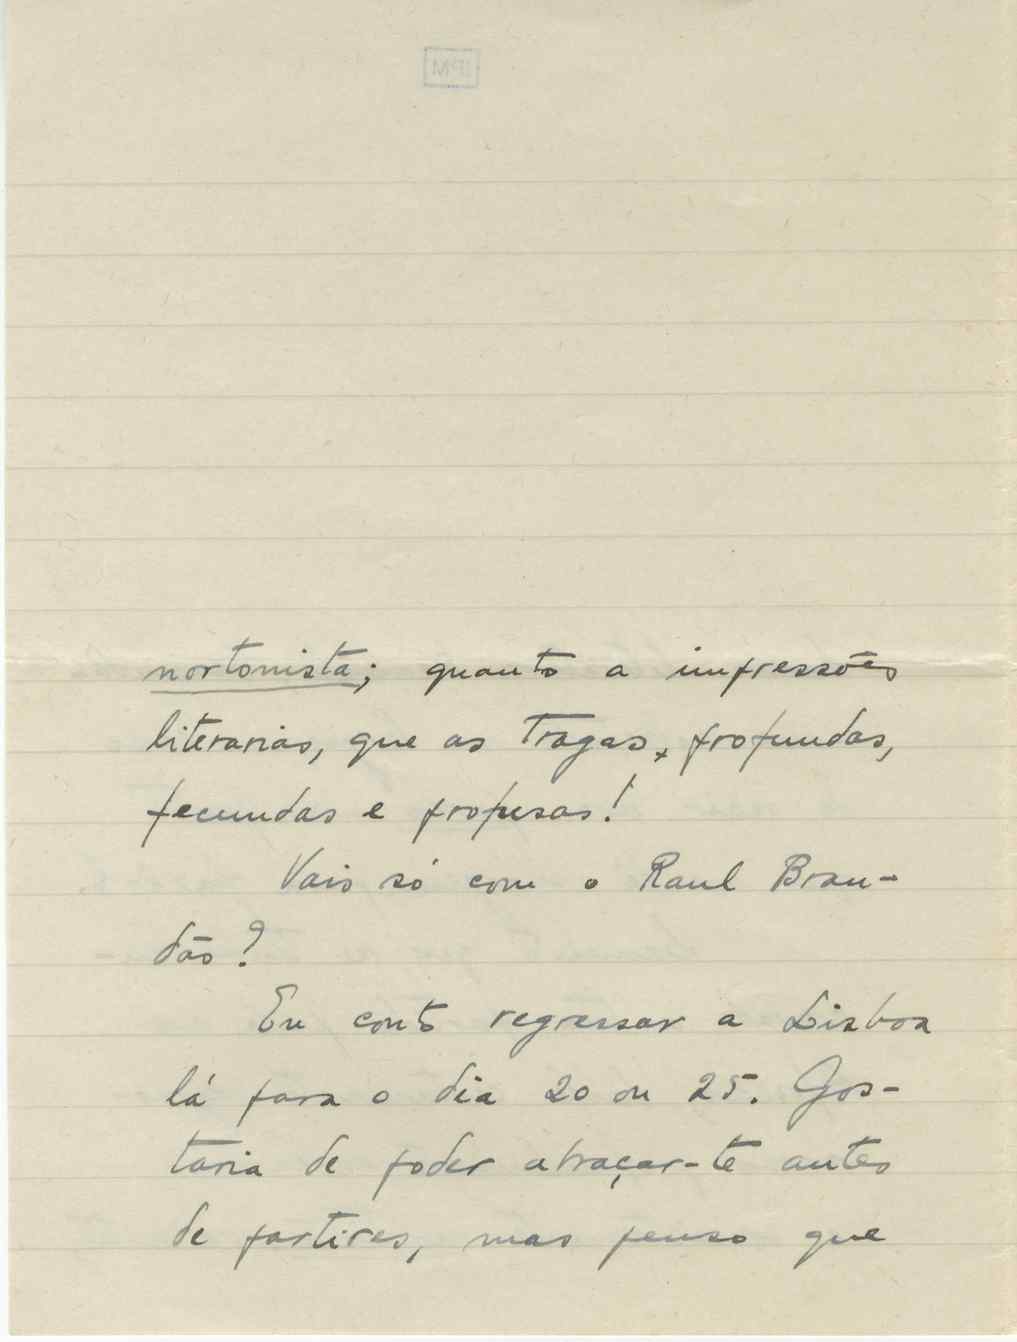 nortonista; quanto a impressões
literarias, que as tragas, profundas,
fecundas e profusas!
Vais só com o Raul Bran-
dão?
Eu conto regressar a Lisboa
lá para o dia 20 ou 25. Gos-
taria de poder abraçar-te antes
de partires, mas penso que